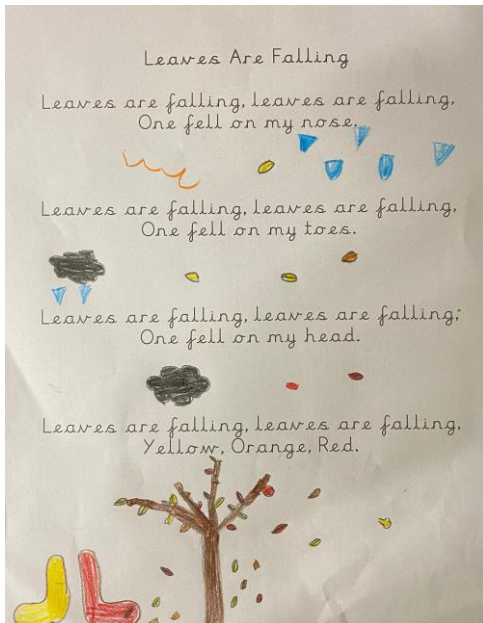 Leaves Are Falling
Leaves are falling, leaves are falling,
One fell on my nose.
Leaves are falling, leaves are falling,
One fell on my toes.
Leaves are falling, leaves are falling;
One fell on my head.
Leaves are falling, leaves are falling,
Yellow, Orange, Red.